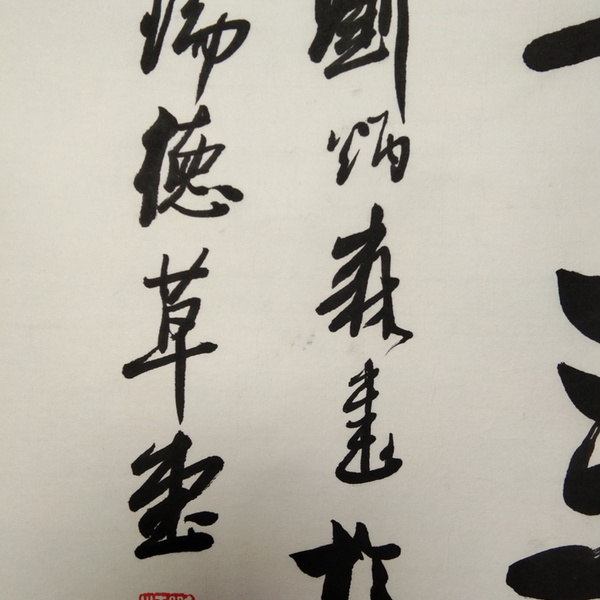 劉炳森書於
瑞德草堂